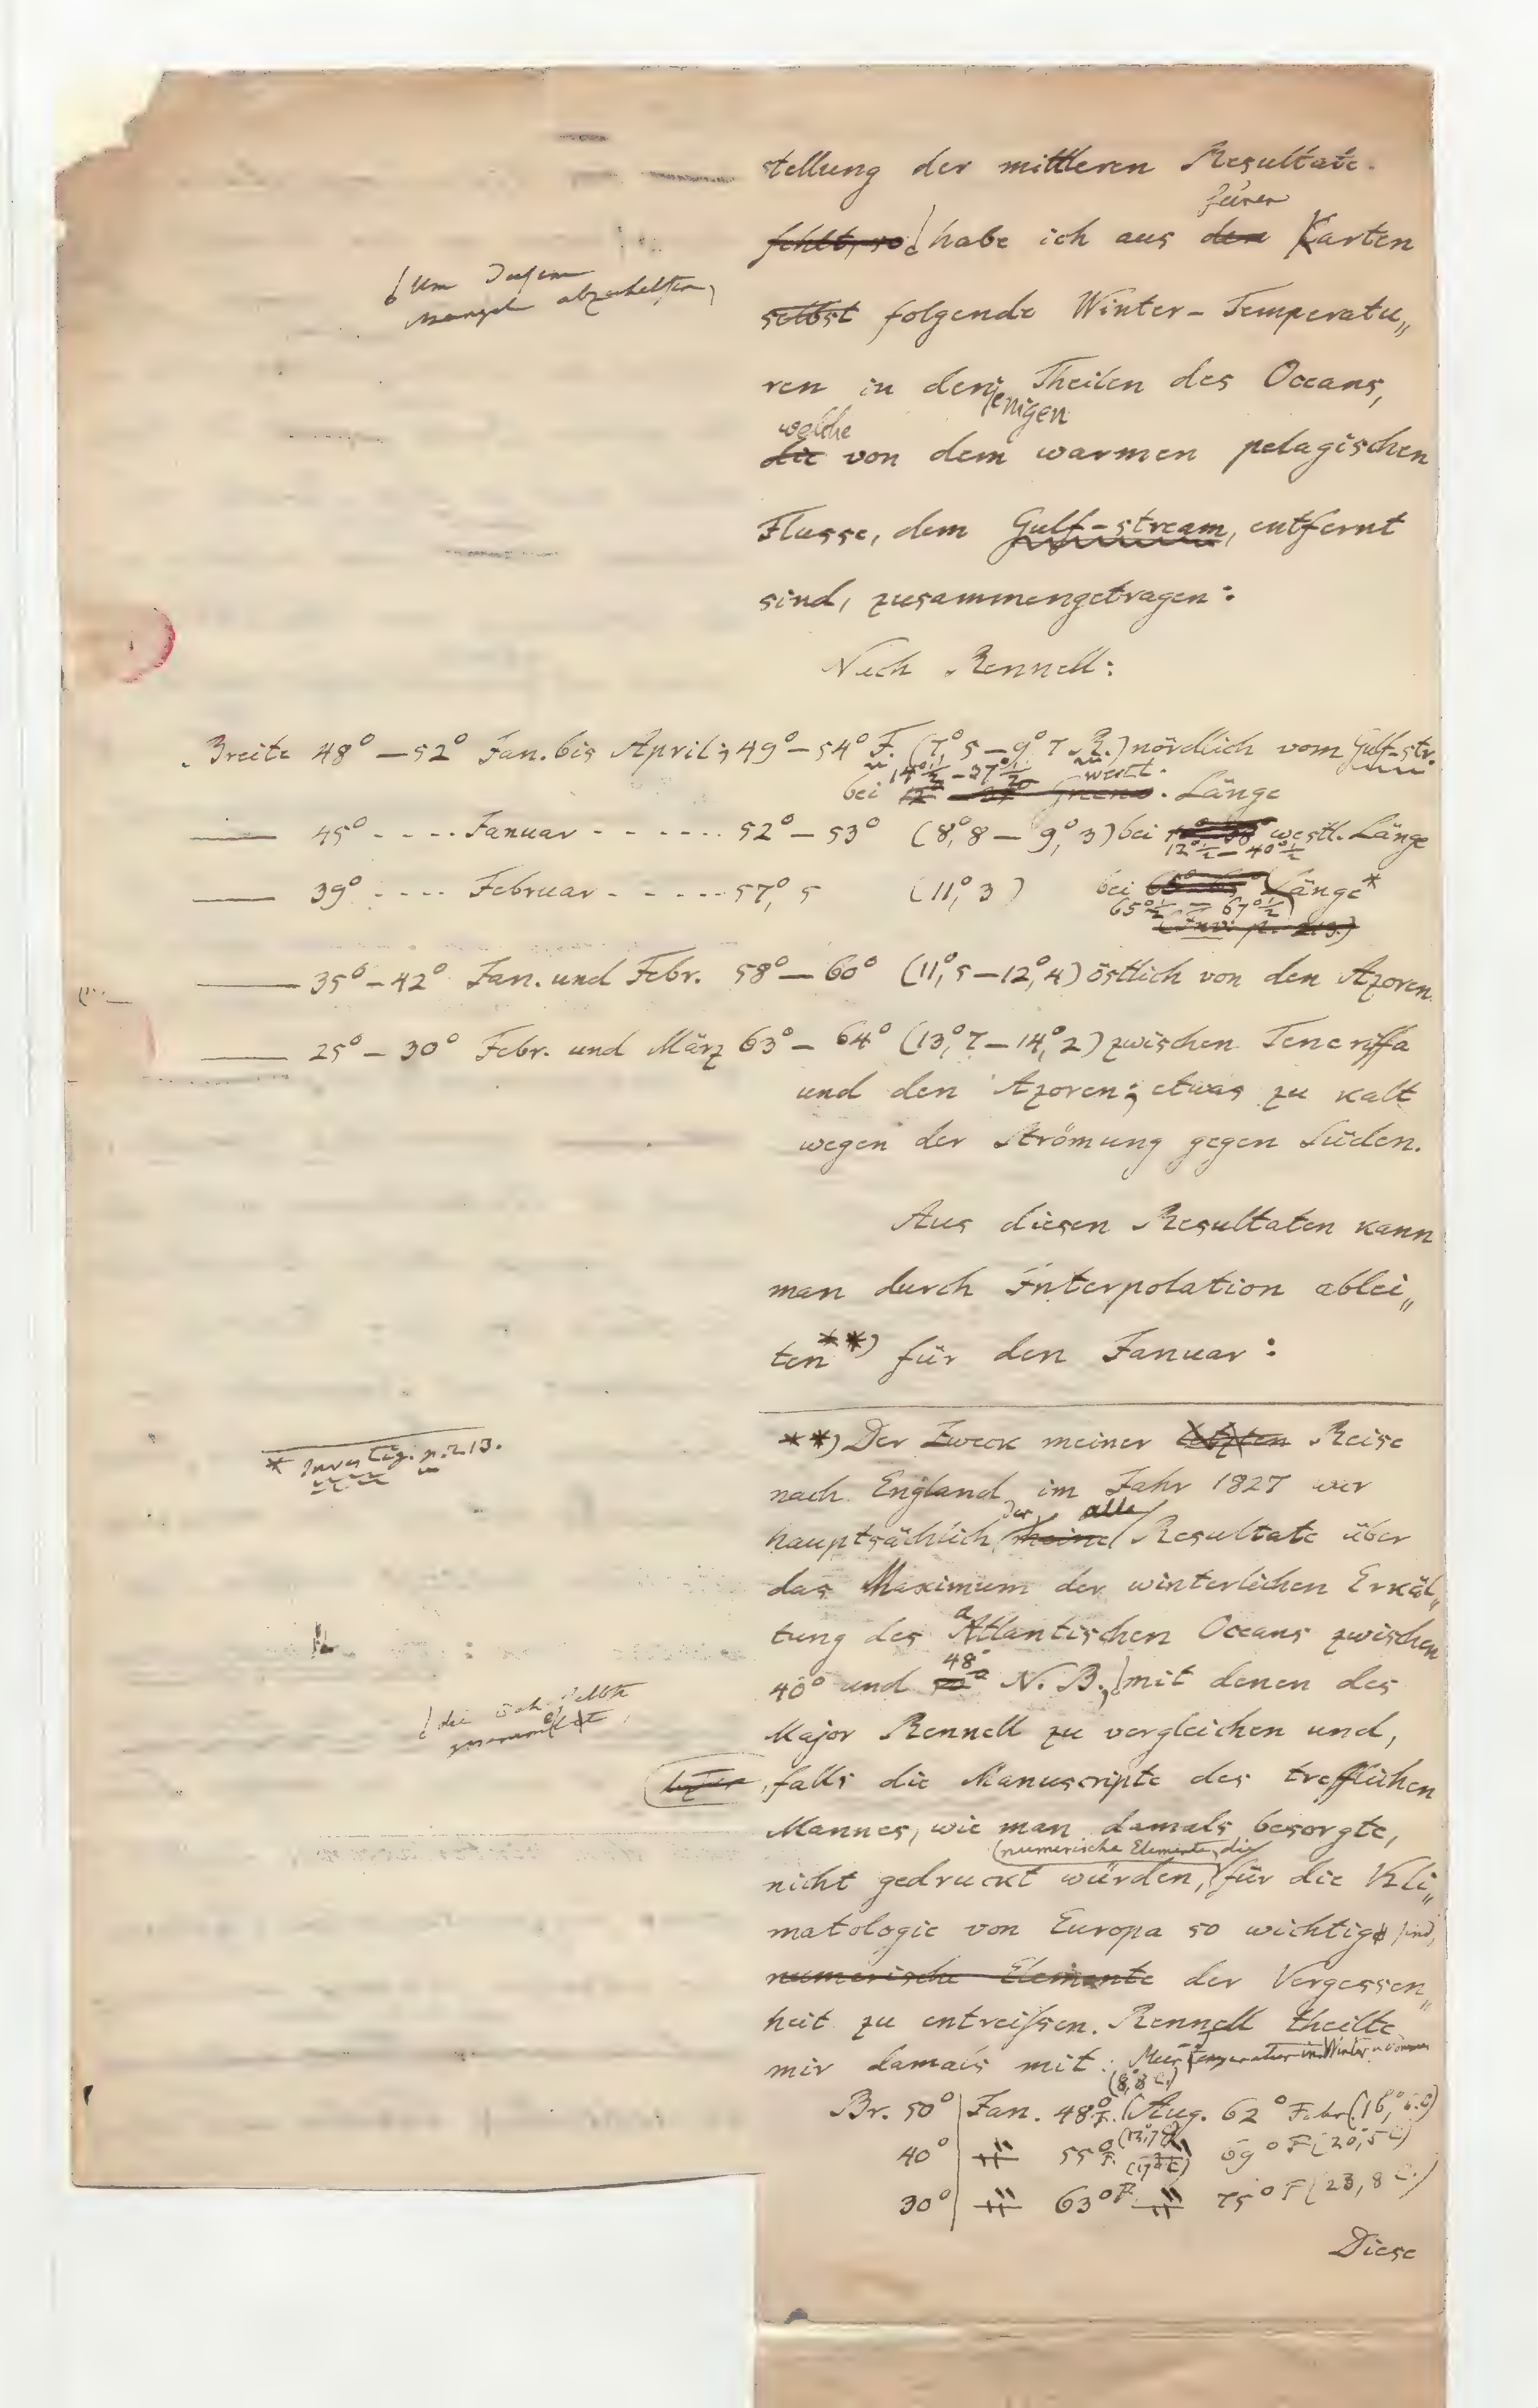 stellung der mittleren Resultate.
fehlt, so habe ich aus den seinen Karten
um diesem
Mangel abzuhelfen,
selbst folgende Winter-Temperatu„
ren in denjenigen Theilen des Oceans,
welche
die von dem warmen pelagischen
Flusse, dem Gulf-stream, entfernt
sind, zusammengetragen:
Nach Rennell:
Breite 48° — 52° Jan. bis April; 49° — 54° F. (7°,5 — 9°,7 R.) nördlich vom Gulf-str.
bei 14°½ — 37°½ westl. Länge
— 45° - - - - Januar - - - - - - 52° — 53° (8°,8 — 9°,3) bei westl. Länge
12°½ — 40°½
— 39° - - - - Februar - - - - - - 57°,5 (11°,3) bei Länge*
65°½ — 67°½
(Inv: p. 213.)
— 35° — 42° Jan. und Febr. 58° — 60° (11°,5 — 12°,4) östlich von den Azoren
— 25° — 30° Febr. und März 63° — 64° (13°,7 — 14°,2) zwischen Teneriffa
und den Azoren; etwas zu kalt
wegen der Strömung gegen Süden.
Aus diesen Resultaten kann
man durch Interpolation ablei„
ten**) für den Januar:
* Investig. p. 213.
**) Der Zweck meiner letzten Reise
nach England im Jahr 1827 war
hauptsächlich der, meine alle Resultate über
das Maximum der winterlichen Erkäl„
tung des atlantischen Oceans zwischen
40° und 48° N. B., mit denen des
die ich selbst
gesammelt,
Major Rennell zu vergleichen und,
falls die Manuscripte des trefflichen
Mannes, wie man damals besorgte,
nicht gedruckt würden, (numerische Elemente, die für die Kli„
matologie von Europa so wichtig sind,
numerische Elemente der Vergessen„
heit zu entreissen. Rennell theilte
mir damals mit: Meer Temperatur im Winter u Sommer
Br. 50° | Jan. 48° F. (8°,8 C.) Aug. 62° Fahr (16°,6 C)
40° | " 55° F. (12°,7 C) " 69° F (20°,5 C)
30° | " 63° F. (17°,2 C) " 75° F (23,8 C.)
Diese